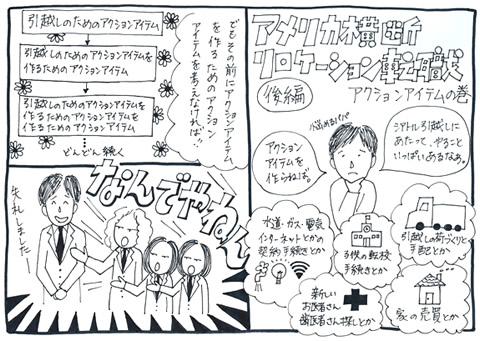 アメリカ横断
リロケーション転職
後編
アクションアイテムの巻
悩めるパパ
シアトル引越しに
あたって、やること
いっぱいあるなあ。
アクション
アイテムを
作らねば。
水道・ガス・電気
インターネットとかの
契約手続きとか
子供の転校
手続きとか
引越しの荷づくりと
手配とか
新しい
お医者さん
歯医者さん探しとか
家の売買とか
でもその前にアクションアイテム
を作るためのアクション
アイテムを考えなければ!!
引越しのためのアクションアイテム
引越しのためのアクションアイテムを
作るためのアクションアイテム
引越しのためのアクションアイテムを
作るためのアクションアイテムを
作るためのアクションアイテム
どんどん続く
なんでやねん
失礼しました